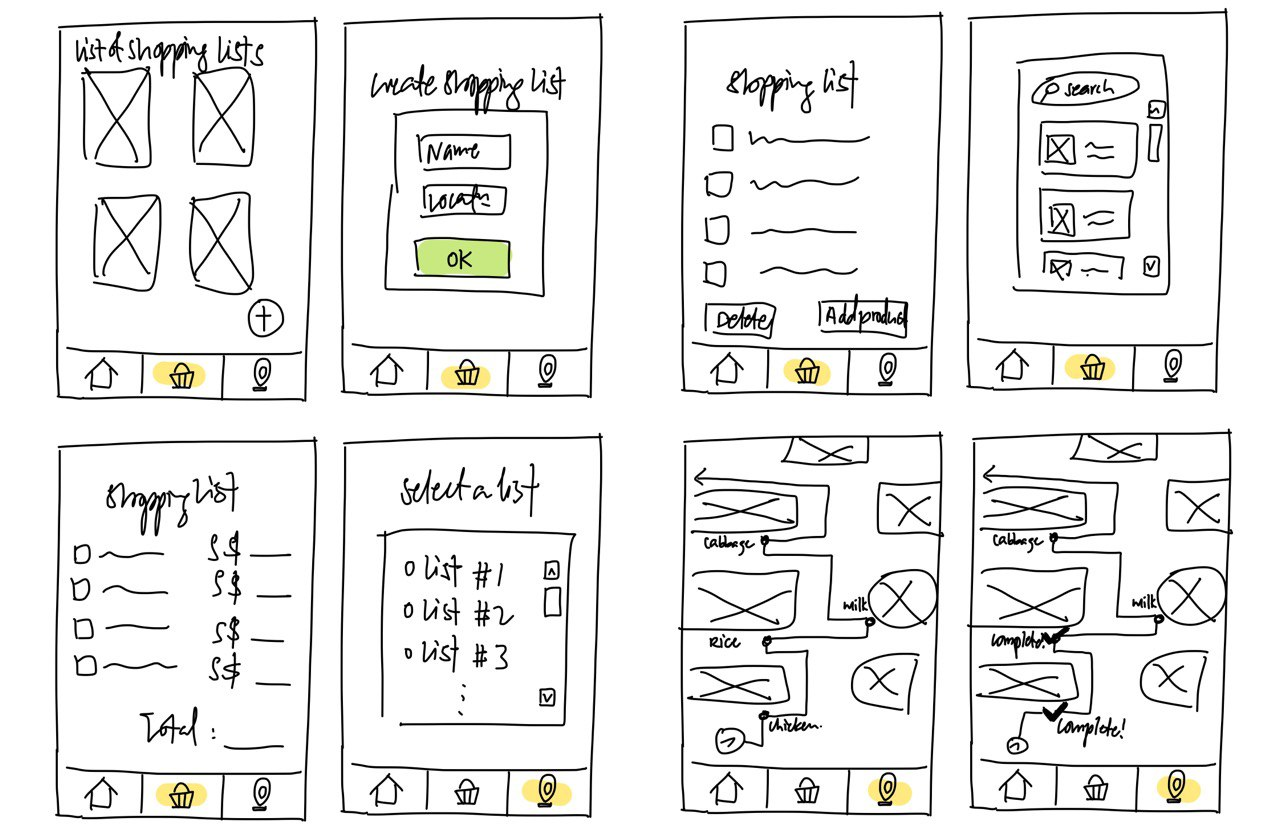 List of shopping lists
Create shopping list
Name
OK
Shopping list
Delete
Add product
search
Shopping List
S$
S$
S$
S$
Total :
Select a list
List #1
List #2
List #3
Cabbage
milk
Rice
chicken.
Cabbage
milk
Complete!
Complete!